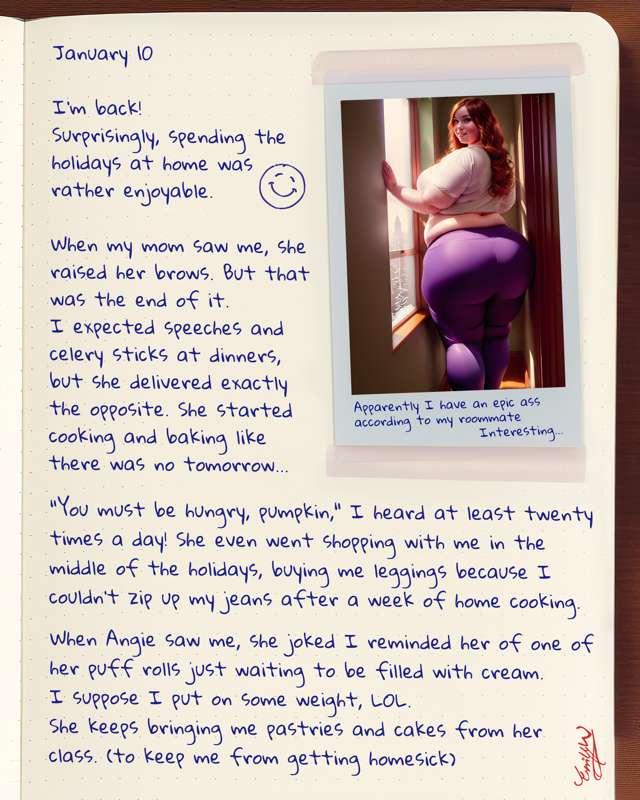 January 10
I'm back!
Surprisingly, spending the
holidays at home was
rather enjoyable.
When my mom saw me, she
raised her brows. But that
was the end of it.
I expected speeches and
celery sticks at dinners,
but she delivered exactly
the opposite. She started
cooking and baking like
there was no tomorrow...
Apparently I have an epic ass
according to my roommate
Interesting...
"You must be hungry, pumpkin," I heard at least twenty
times a day! She even went shopping with me in the
middle of the holidays, buying me leggings because I
couldn't zip up my jeans after a week of home cooking.
When Angie saw me, she joked I reminded her of one of
her puff rolls just waiting to be filled with cream.
I suppose I put on some weight, LOL.
She keeps bringing me pastries and cakes from her
class. (to keep me from getting homesick)